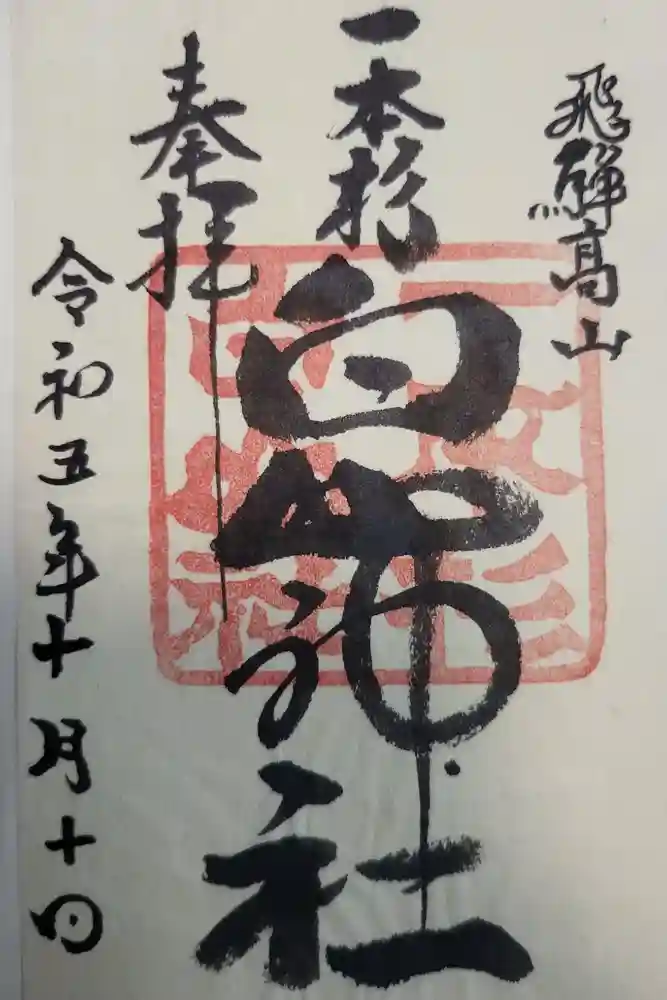 飛騨髙山
一本杉
白山神社
奉拝
令和五年十月十日